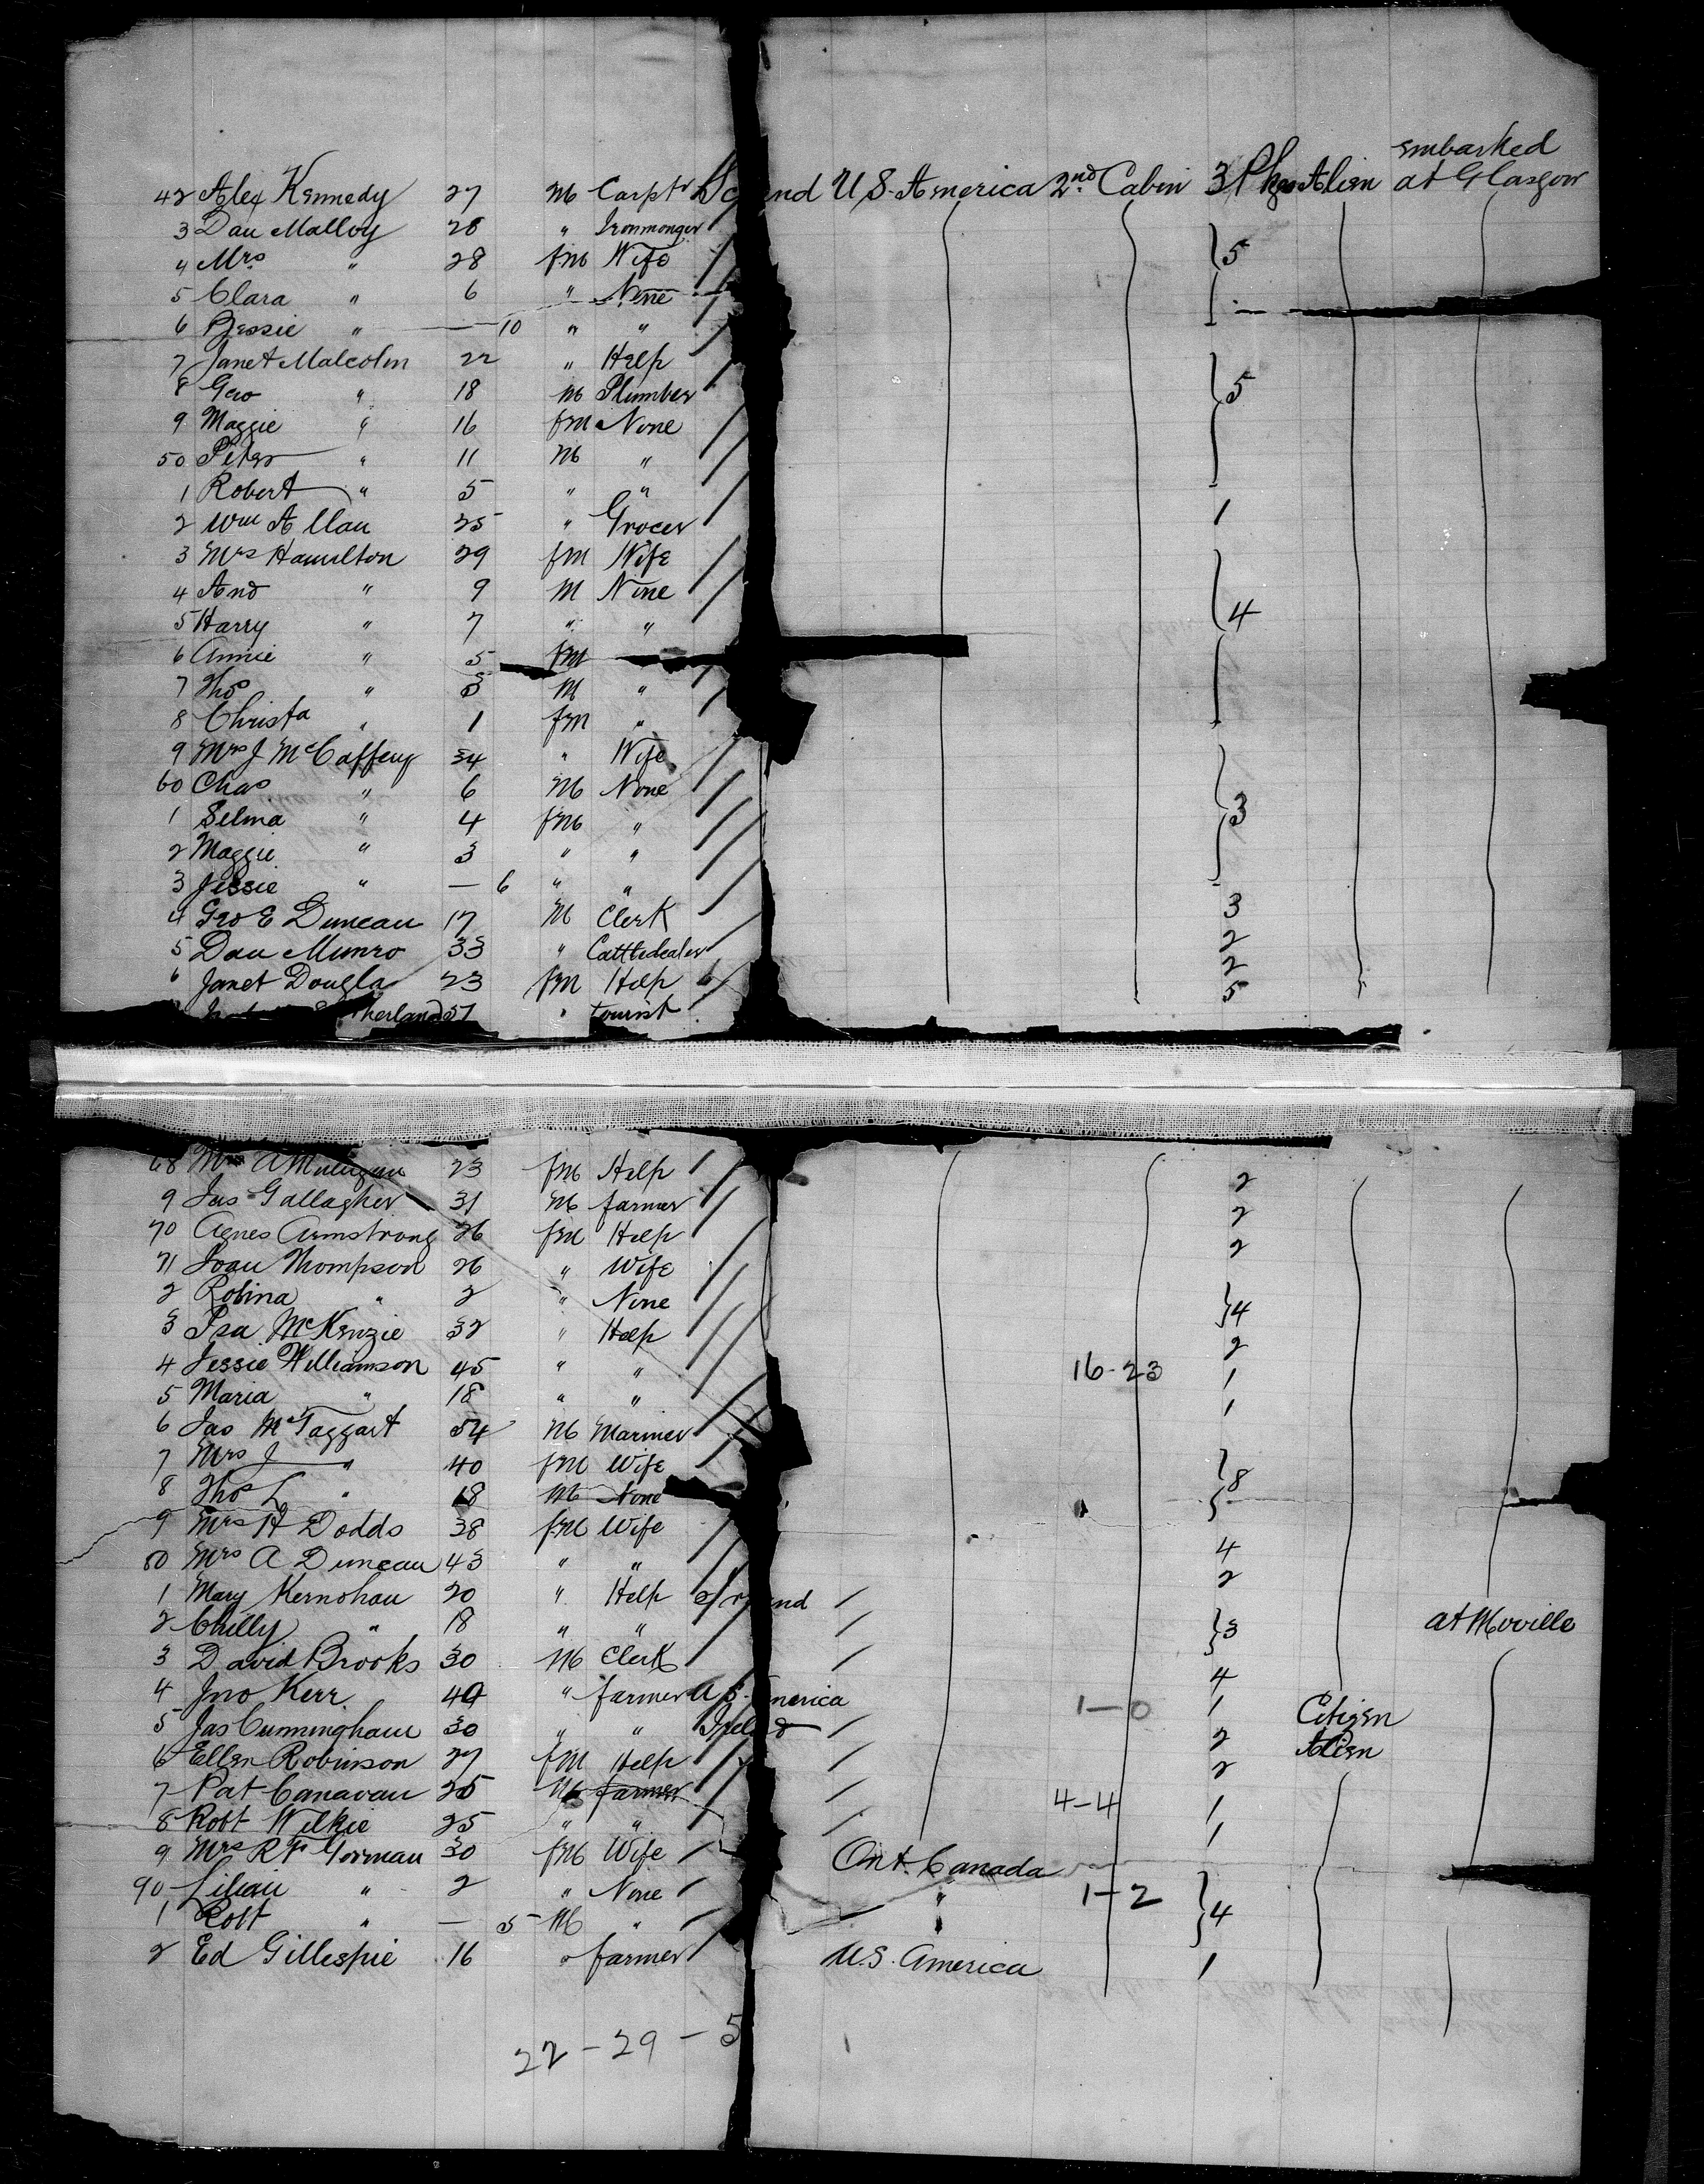 embarked
42 Alex Kennedy 27 M Carptr Sc nd U S. America 2nd Cabin 3 Pkgs Alien at Glasgow
3 Dan Malloy 28 " Ironmonger
4 Mrs " 28 fm Wife 5
5 Clara " 6 " None
6 Bessie " — 10 " "
7 Janet Malcolm 22 " Help
8 Geo " 18 M Plumber 5
9 Maggie " 16 fm None
50 Peter " 11 M "
1 Robert " 5 " "
2 Wm Allan 25 " Grocer 1
3 Mrs Hamilton 29 fm Wife
4 And " 9 M None
5 Harry " 7 " " 4
6 Annie " 5 fm
7 Thos " 3 M "
8 Christa " 1 fm "
9 Mrs J McCaffery 34 " Wife
60 Chas " 6 M None
1 Selma " 4 fm " 3
2 Maggie " 3 " "
3 Jessie " — 6 " "
4 Geo E Duncan 17 M Clerk 3
5 Dan Munro 33 " Cattledealer 2
6 Janet Dougla 23 fm Help 2
herland 57 " tourist 5
68 A Mulligan 23 fm Help 2
9 Jas Gallagher 31 M farmer 2
70 Agnes Armstrong 26 fm Help 2
71 Joan Thompson 26 " Wife
2 Robina " 2 " None 4
3 Isa McKenzie 32 " Help 2
4 Jessie Williamson 45 " " 16-23 1
5 Maria " 18 " " 1
6 Jas McTaggart 54 M Mariner
7 Mrs J " 40 fm Wife 8
8 Thos L " 18 M None
9 Mrs H Dodds 38 fm Wife 4
80 Mrs A Duncan 43 " " 2
1 Mary Kernohan 20 " Help Ir nd
2 Chilly " 18 " " 3 at Moville
3 David Brooks 30 M Clerk 4
4 Jno Kerr 49 " farmer U S. merica 1-0 1 Citizen
5 Jas Cunningham 30 " " Irel d 2 Alien
6 Ellen Robinson 27 fm Help 2
7 Pat Canavan 25 M farmer 4-4 1
8 Robt Wilkie 25 " " 1
9 Mrs R F Gorman 30 fm Wife Ont. Canada
90 Lilian " 2 " None " 1-2 4
1 Robt " — 5 M " "
2 Ed Gillespie 16 " farmer U.S. America 1
22-29-5